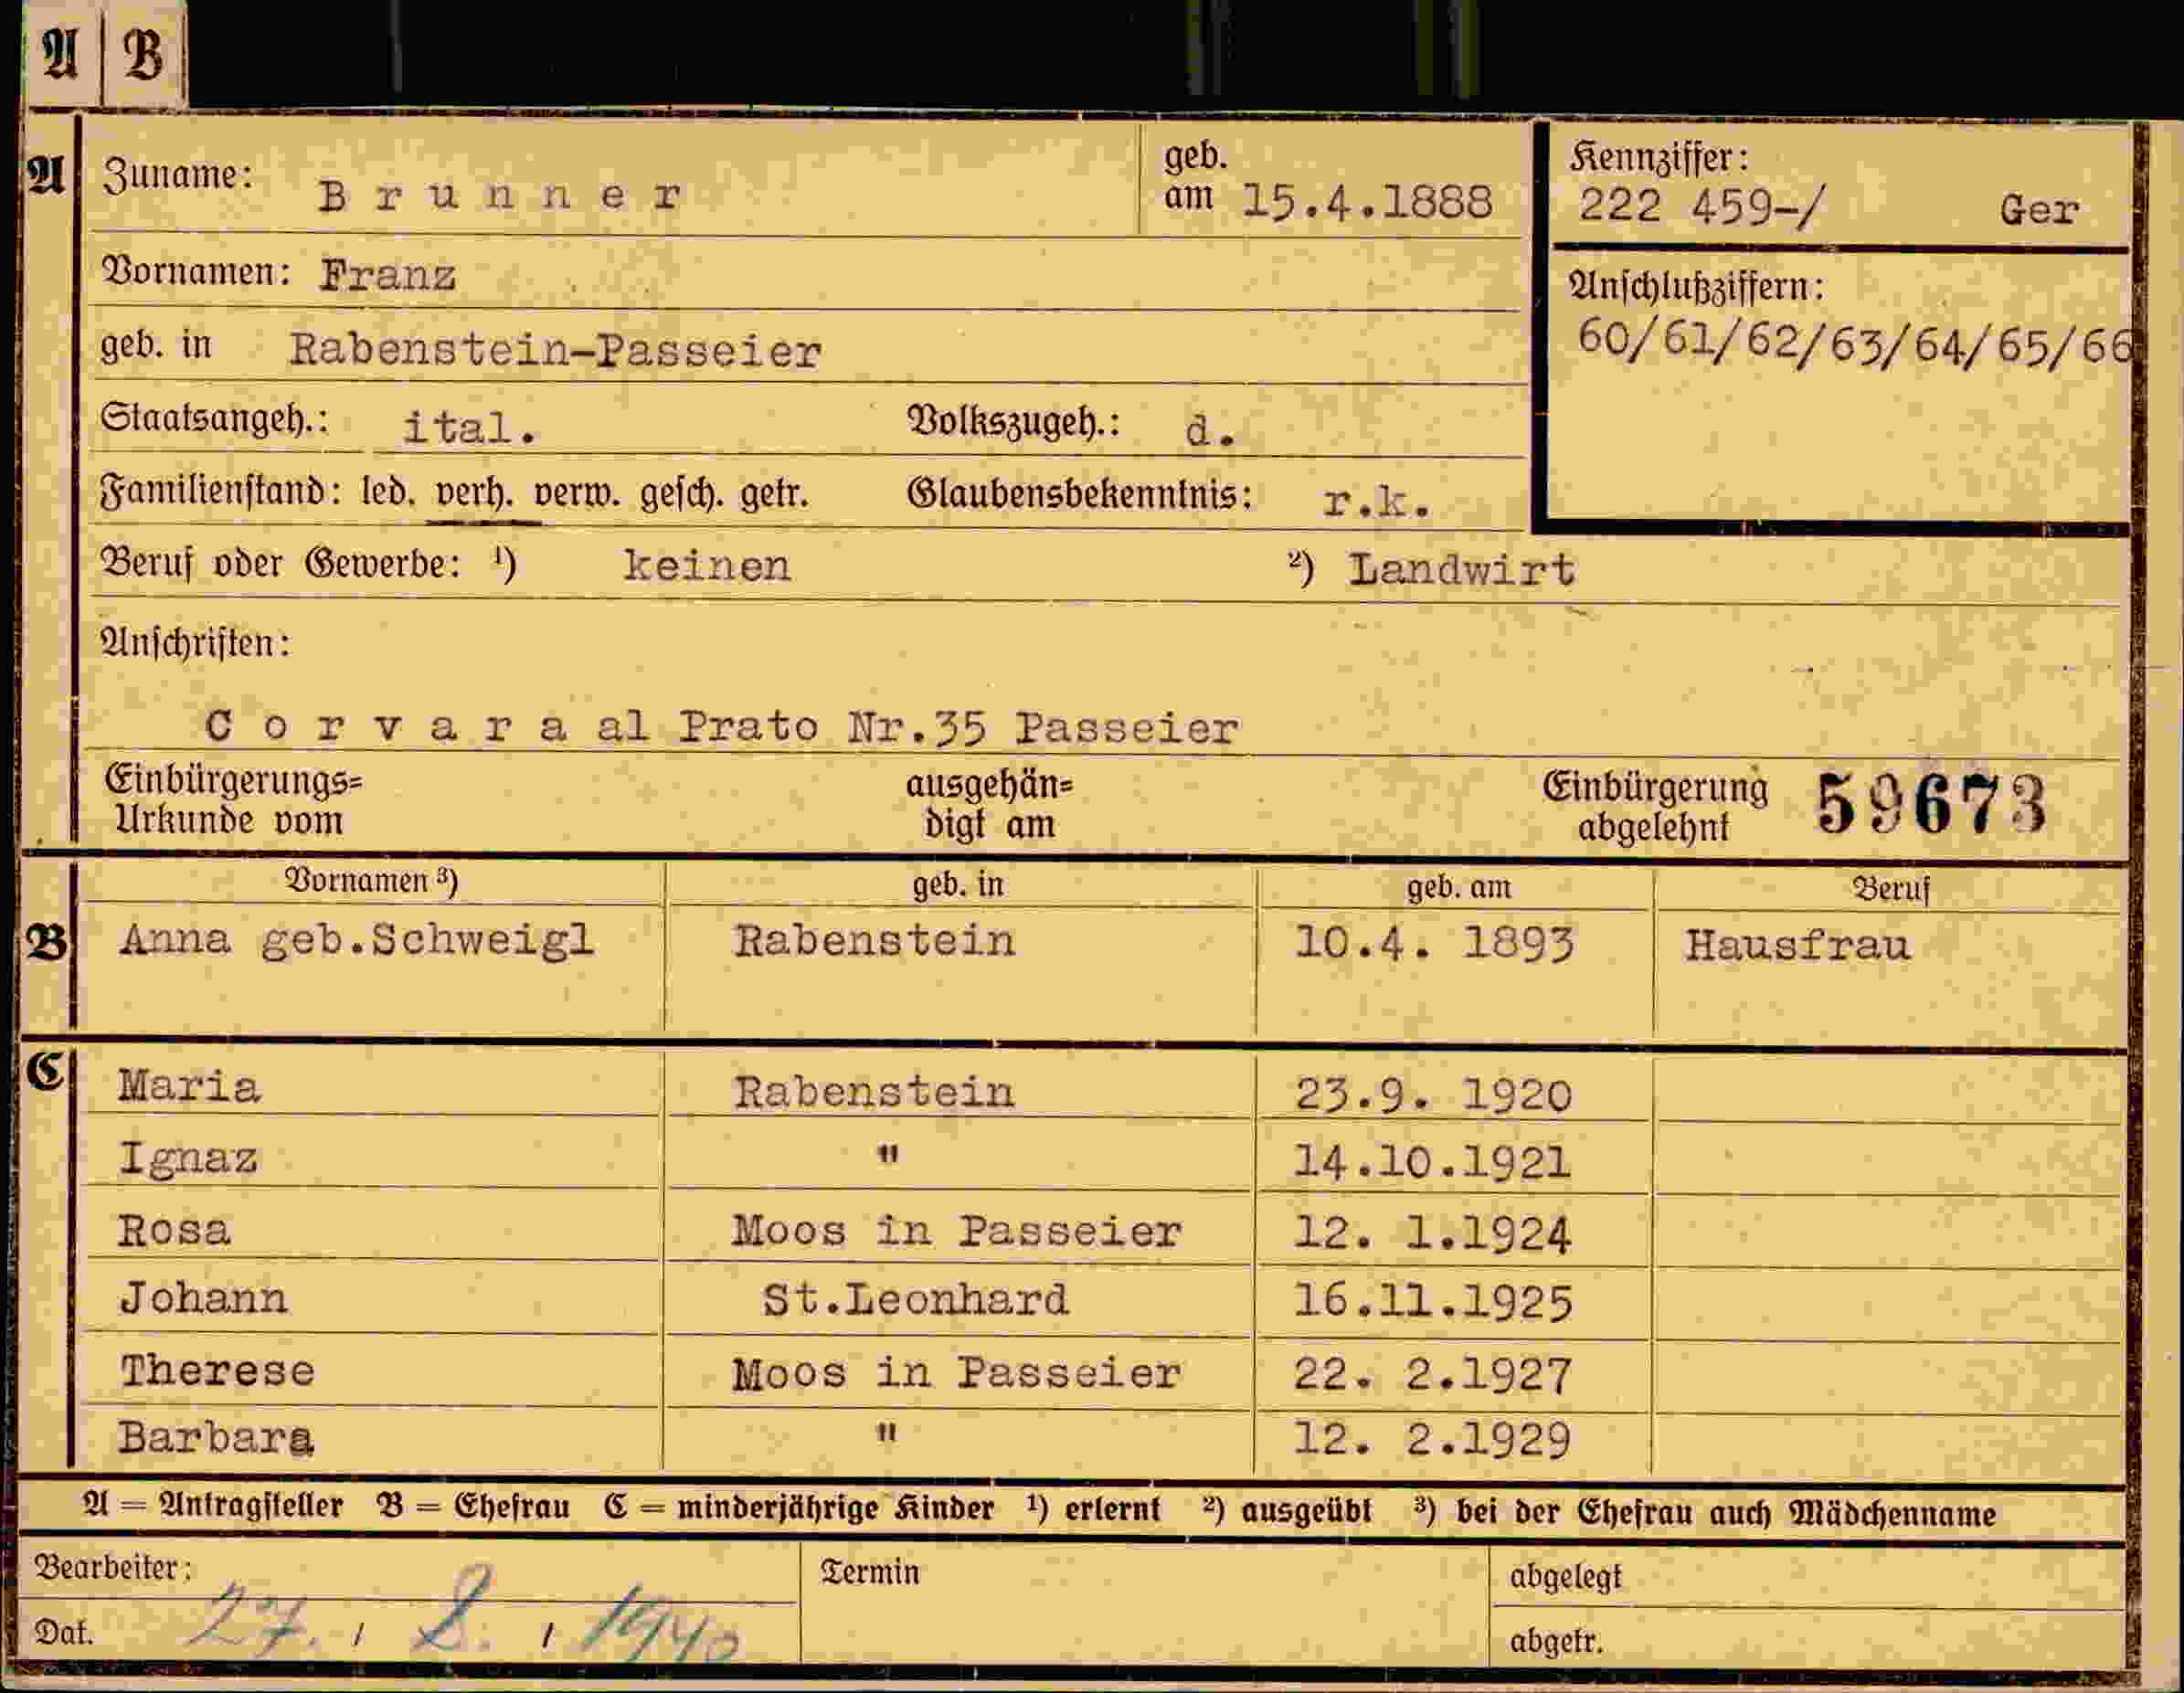 A B
A Zuname: Brunner geb. am 15.4.1888
Kennziffer:
222 459-/ Ger
Vornamen: Franz
Anschlußziffern:
60/61/62/63/64/65/66
geb. in Rabenstein-Passeier
Staatsangeh.: ital. Volkszugeh.: d.
Familienstand: led. verh. verw. gesch. getr. Glaubensbekenntnis: r.k.
Beruf oder Gewerbe: ¹) keinen ²) Landwirt
Anschriften:
Corvara al Prato Nr.35 Passeier
Einbürgerungs= Urkunde vom
ausgehän= digt am
Einbürgerung abgelehnt 59673
Vornamen ³) geb. in geb. am Beruf
B Anna geb.Schweigl Rabenstein 10.4. 1893 Hausfrau
C Maria Rabenstein 23.9. 1920
Ignaz " 14.10.1921
Rosa Moos in Passeier 12. 1.1924
Johann St.Leonhard 16.11.1925
Therese Moos in Passeier 22. 2.1927
Barbara " 12. 2.1929
A = Antragsteller B = Ehefrau C = minderjährige Kinder ¹) erlernt ²) ausgeübt ³) bei der Ehefrau auch Mädchenname
Bearbeiter: Termin abgelegt
Dat. 27. / 8. / 1940 abgetr.